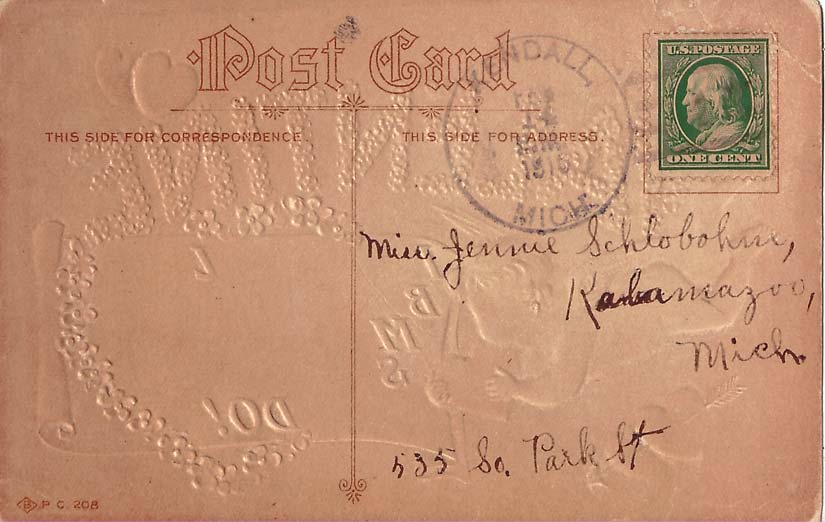 Post Card
THIS SIDE FOR CORRESPONDENCE.
THIS SIDE FOR ADDRESS.
KENDALL,
FEB
AM
MICH.
U.S. POSTAGE
ONE CENT
Miss. Jennie Schlobohm,
Kalamazoo,
Mich.
535 So. Park St
DO!
B P C. 208